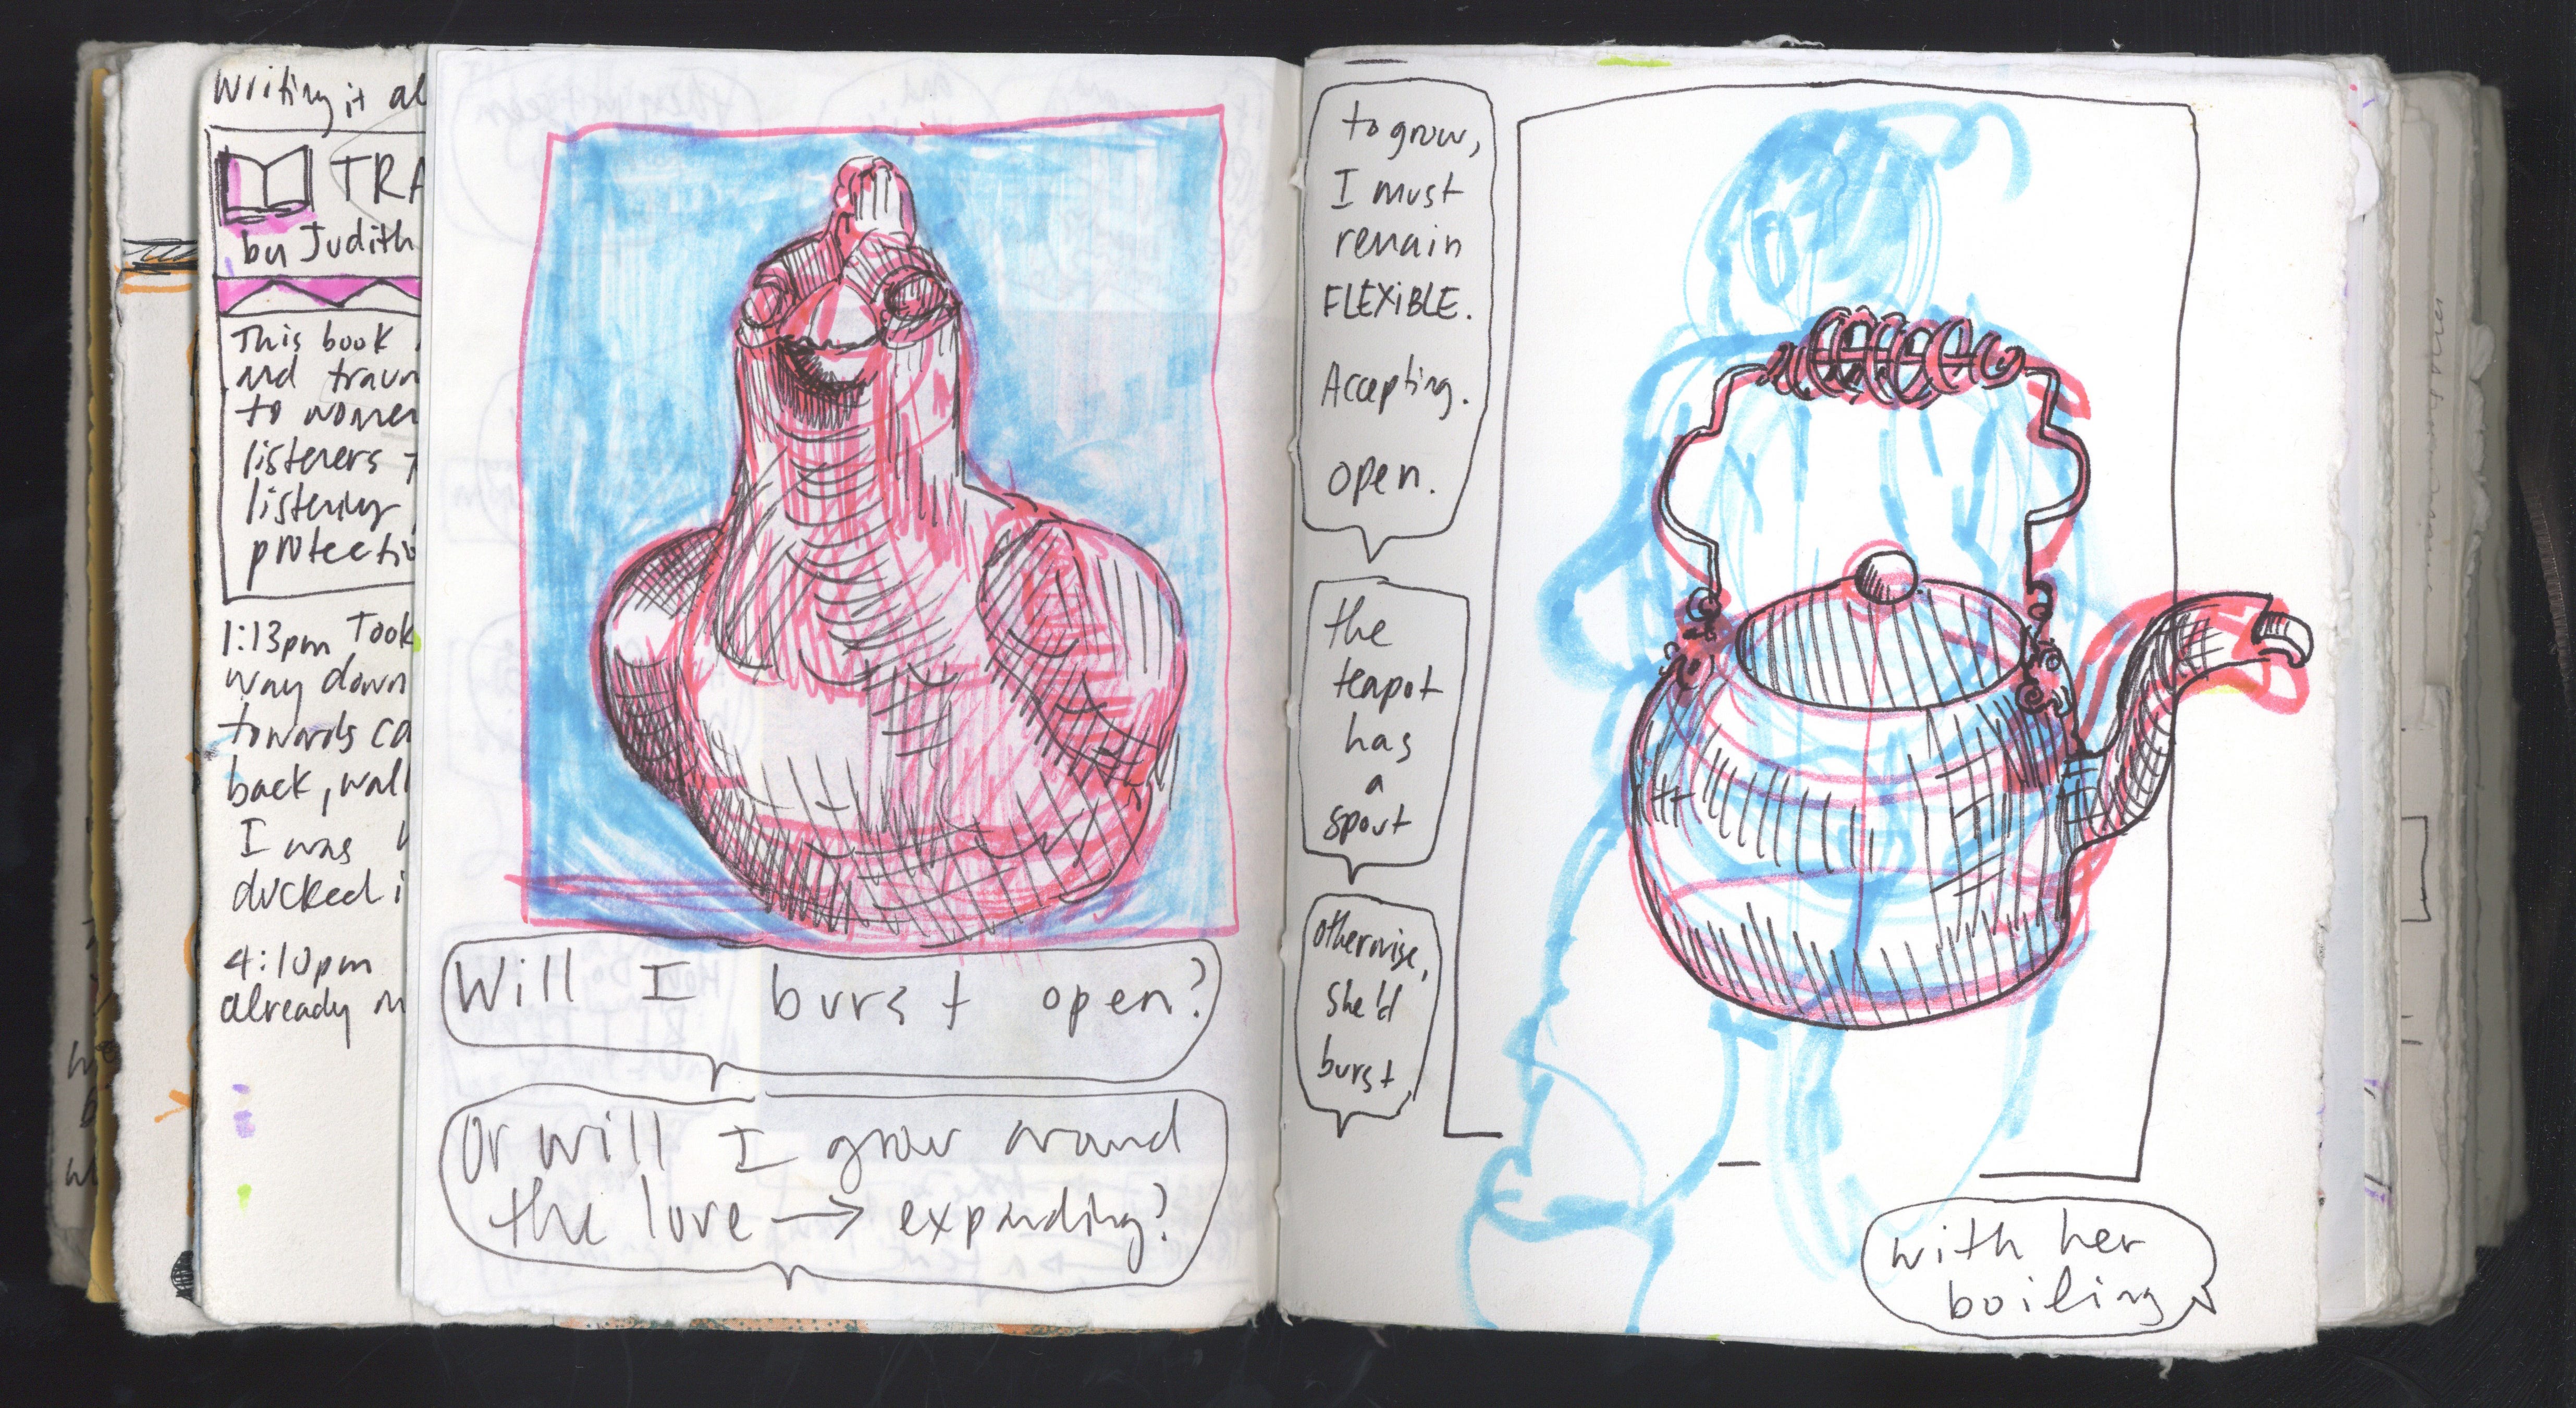 Writing it al
TRA
by Judith
This book
and traum
to women
listeners
listening
protectio
1:13pm Took
way down
towards ca
back, wall
I was
ducked i
4:10pm
already m
Will I burst open?
Or will I grow around
the love → expanding?
to grow,
I must
remain
FLEXIBLE.
Accepting.
open.
the
teapot
has
a
spout
otherwise,
she'd
burst
with her
boiling